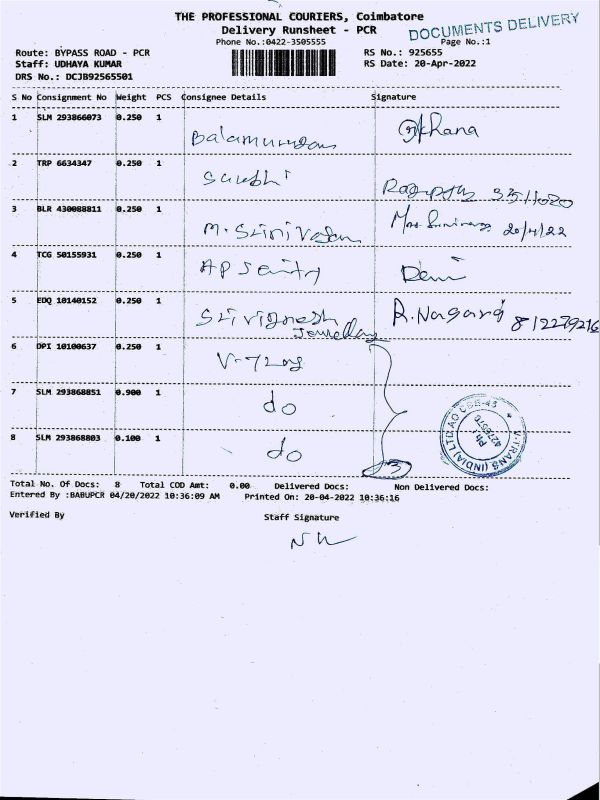 THE PROFESSIONAL COURIERS, Coimbatore
Delivery Runsheet - PCR
DOCUMENTS DELIVERY
Phone No.:0422-3505555
Page No.:1
Route: BYPASS ROAD - PCR
RS No.: 925655
Staff: UDHAYA KUMAR
RS Date: 20-Apr-2022
DRS No.: DCJB92565501
S No Consignment No Weight PCS Consignee Details Signature
1 SLM 293866073 0.250 1
Balamurugan
2 TRP 6634347 0.250 1
Surabhi
3 BLR 430088811 0.250 1
M. Srinivasan 20/4/22
4 TCG 50155931 0.250 1
AP Devi
5 EDQ 10140152 0.250 1
Srivignesh R. Nagaraj 812279216
Jewellary
6 DPI 10100637 0.250 1
V-
7 SLM 293868851 0.900 1
do
8 SLM 293868803 0.100 1
do
3
V-TRANS (INDIA) LTD AO CBE-43
Ph:
4276570
Total No. Of Docs: 8 Total COD Amt: 0.00 Delivered Docs: Non Delivered Docs:
Entered By :BABUPCR 04/20/2022 10:36:09 AM Printed On: 20-04-2022 10:36:16
Verified By Staff Signature